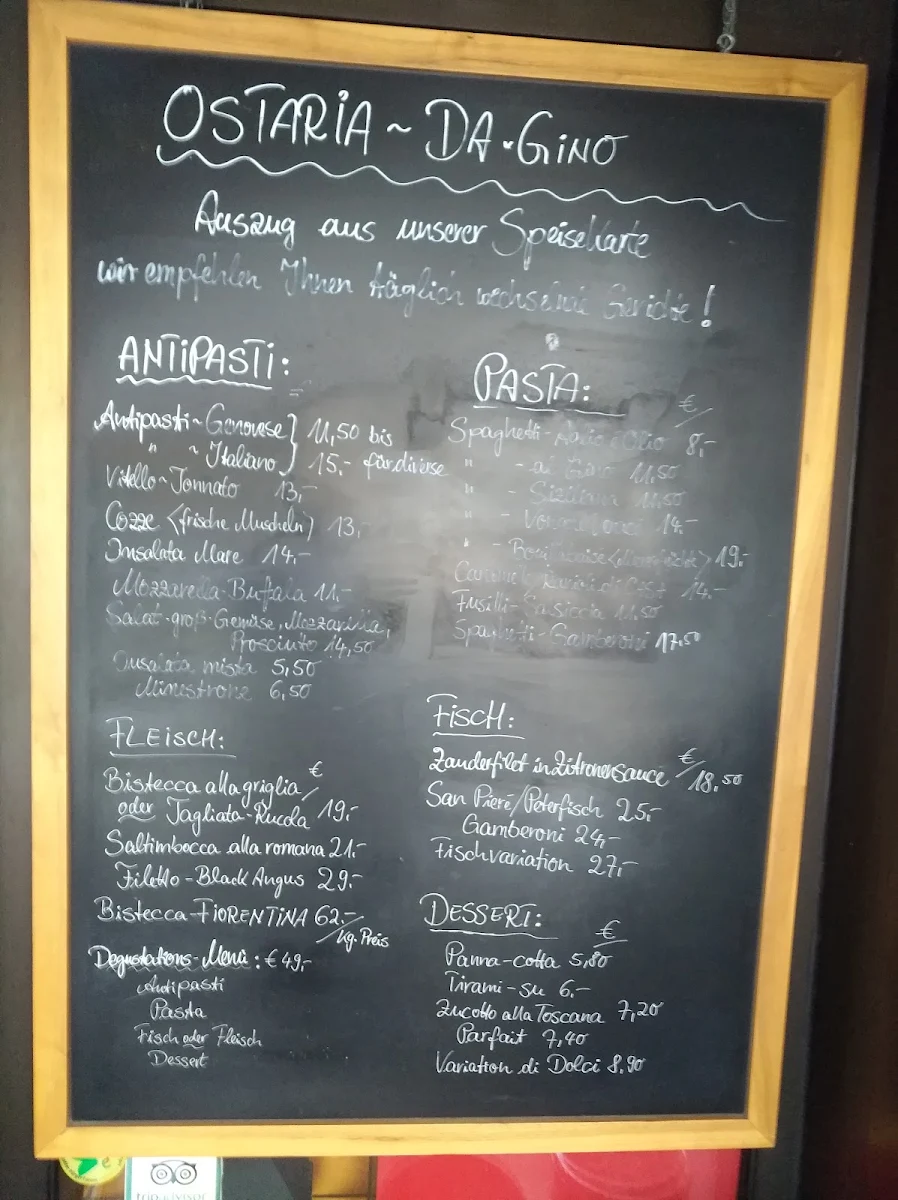 OSTARIA ~ DA · GINO
Auszug aus unserer Speisekarte
wir empfehlen Ihnen täglich wechselnde Gerichte!
ANTIPASTI:
Antipasti ~ Genovese } 11,50 bis
" ~ Italiano } 15,- für diverse
Vitello ~ Tonnato 13,-
Cozze <frische Muscheln> 13,-
Insalata Mare 14.-
Mozzarella-Bufala 11.-
Salat-groß-Gemüse, Mozzarella,
Prosciutto 14,50
Insalata mista 5,50
Minestrone 6,50
FLEISCH:
€
Bistecca alla griglia
oder Tagliata-Rucola 19.-
Saltimbocca alla romana 21.-
Filetto - Black Angus 29.-
Bistecca FIORENTINA 62.-
/kg. Preis
Degustations-Menü : € 49,-
Antipasti
Pasta
Fisch oder Fleisch
Dessert
PASTA:
€
Spaghetti - Olio 8,-
" - 11,50
" - 11,50
" - 14.-
" - 19.-
14.-
Fusilli - Salsiccia 11,50
Spaghetti - Gamberoni 17,50
FISCH:
€
Zanderfilet in Zitronensauce 18,50
San Pieré/Peterfisch 25.-
Gamberoni 24,-
Fischvariation 27,-
DESSERT:
€
Panna-cotta 5,80
Tirami-su 6.-
Zucotto alla Toscana 7,20
Parfait 7,40
Variation di Dolci 8,90
tripadvisor